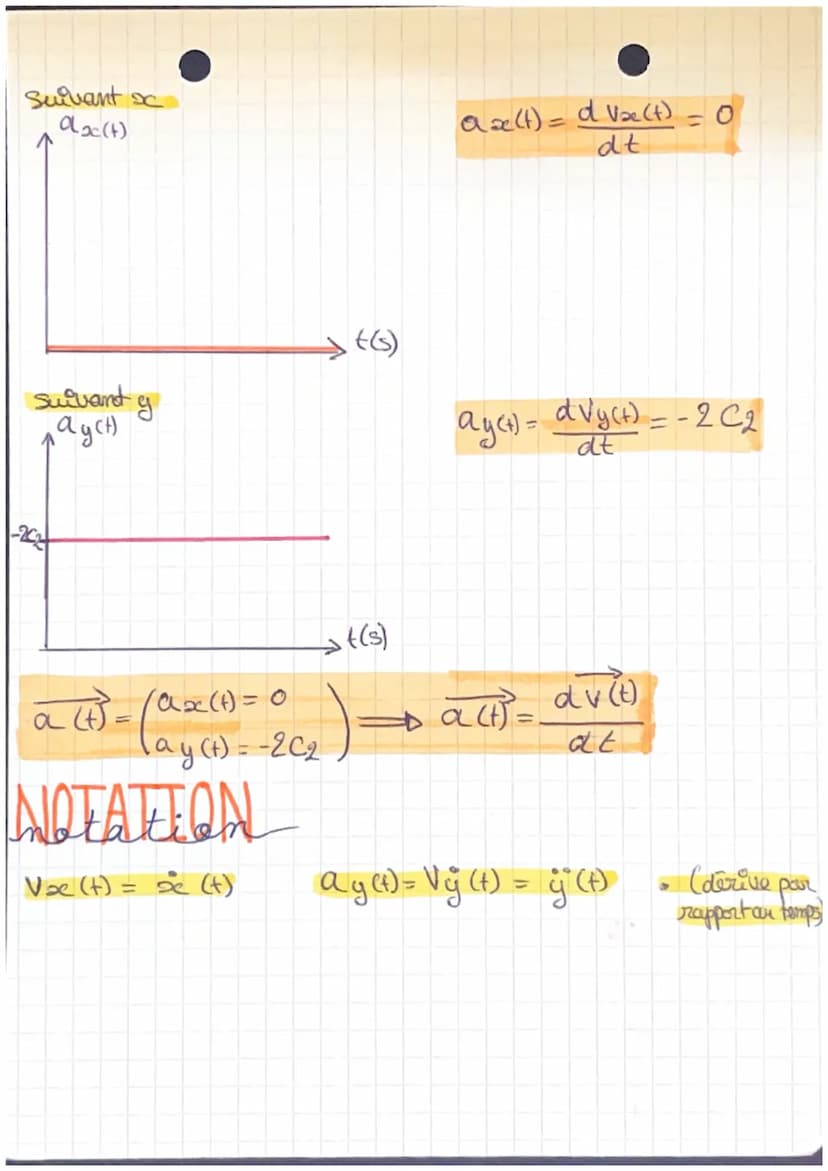 suivant x
ax(t)
ax(t) = d Vx(t) / dt = 0
t(s)
suivant y
ay(t)
ay(t) = dVy(t) / dt = -2C2
-2C2
t(s)
a(t) = (ax(t) = 0
ay(t) = -2C2) ⟹ a(t) = dv(t) / dt
NOTATION
notation
Vx(t) = ẋ(t)
ay(t) = V̇y(t) = ÿ(t)
• (dérive par
rapport au temps)